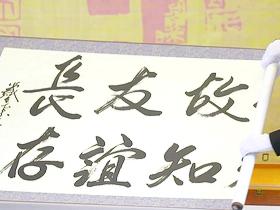 故知
友誼
長存